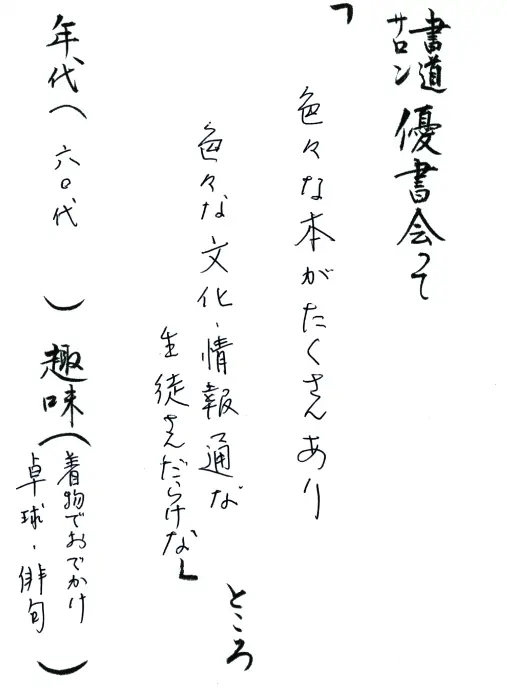 書道サロン 優書会って
「
色々な本がたくさんあり
色々な文化、情報通な
生徒さんだらけな」
ところ
年代（六〇代）趣味（着物でおでかけ
卓球・俳句）